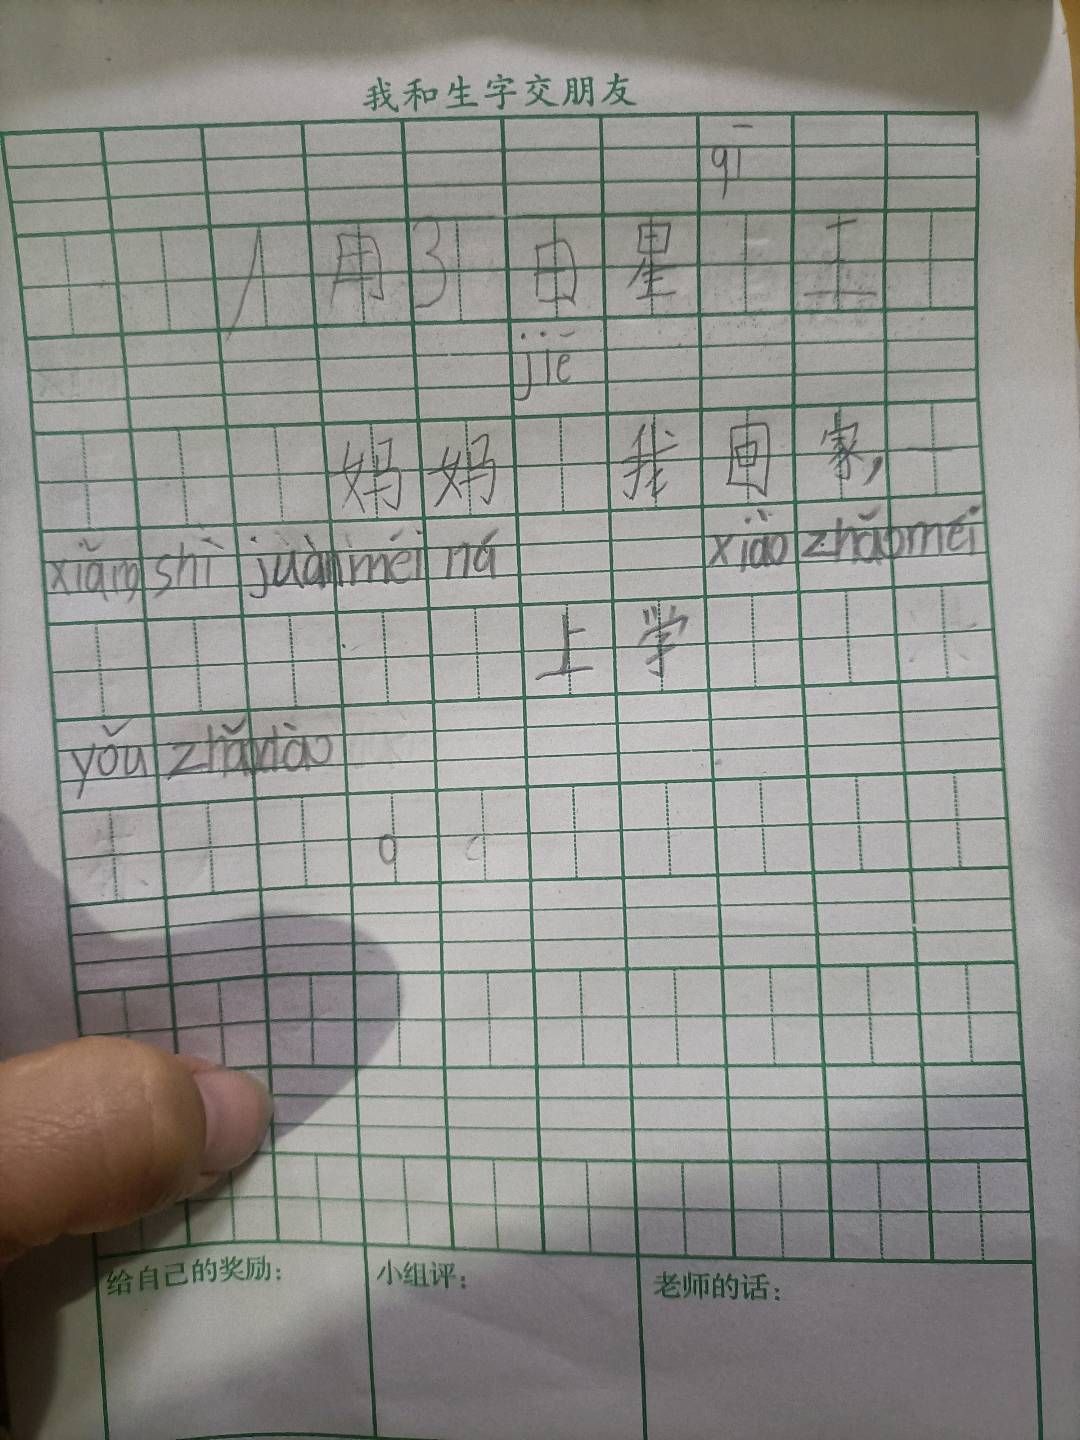 我和生字交朋友
qī
1月3日星 工
jiē
妈妈 我回家，一
xiǎng shì juàn méi ná xiào zhǎo méi
上学
yǒu zhǎ dào
。
给自己的奖励： 小组评： 老师的话：